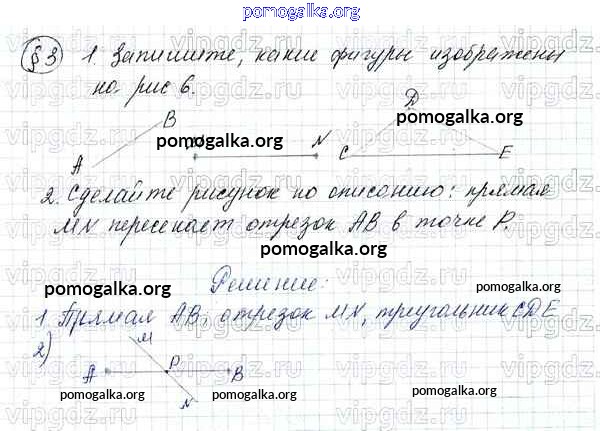 pomogalka.org
§3 1. Запишите, какие фигуры изображены
на рис 6.
A B N C D E
pomogalka.org pomogalka.org
2. Сделайте рисунок по описанию: прямая
MN пересекает отрезок AB в точке P.
pomogalka.org
Решение:
pomogalka.org pomogalka.org
1 Прямая AB, отрезок MN, треугольник CDE
2)
M
A P B
N
pomogalka.org pomogalka.org pomogalka.org
vipgdz.ru